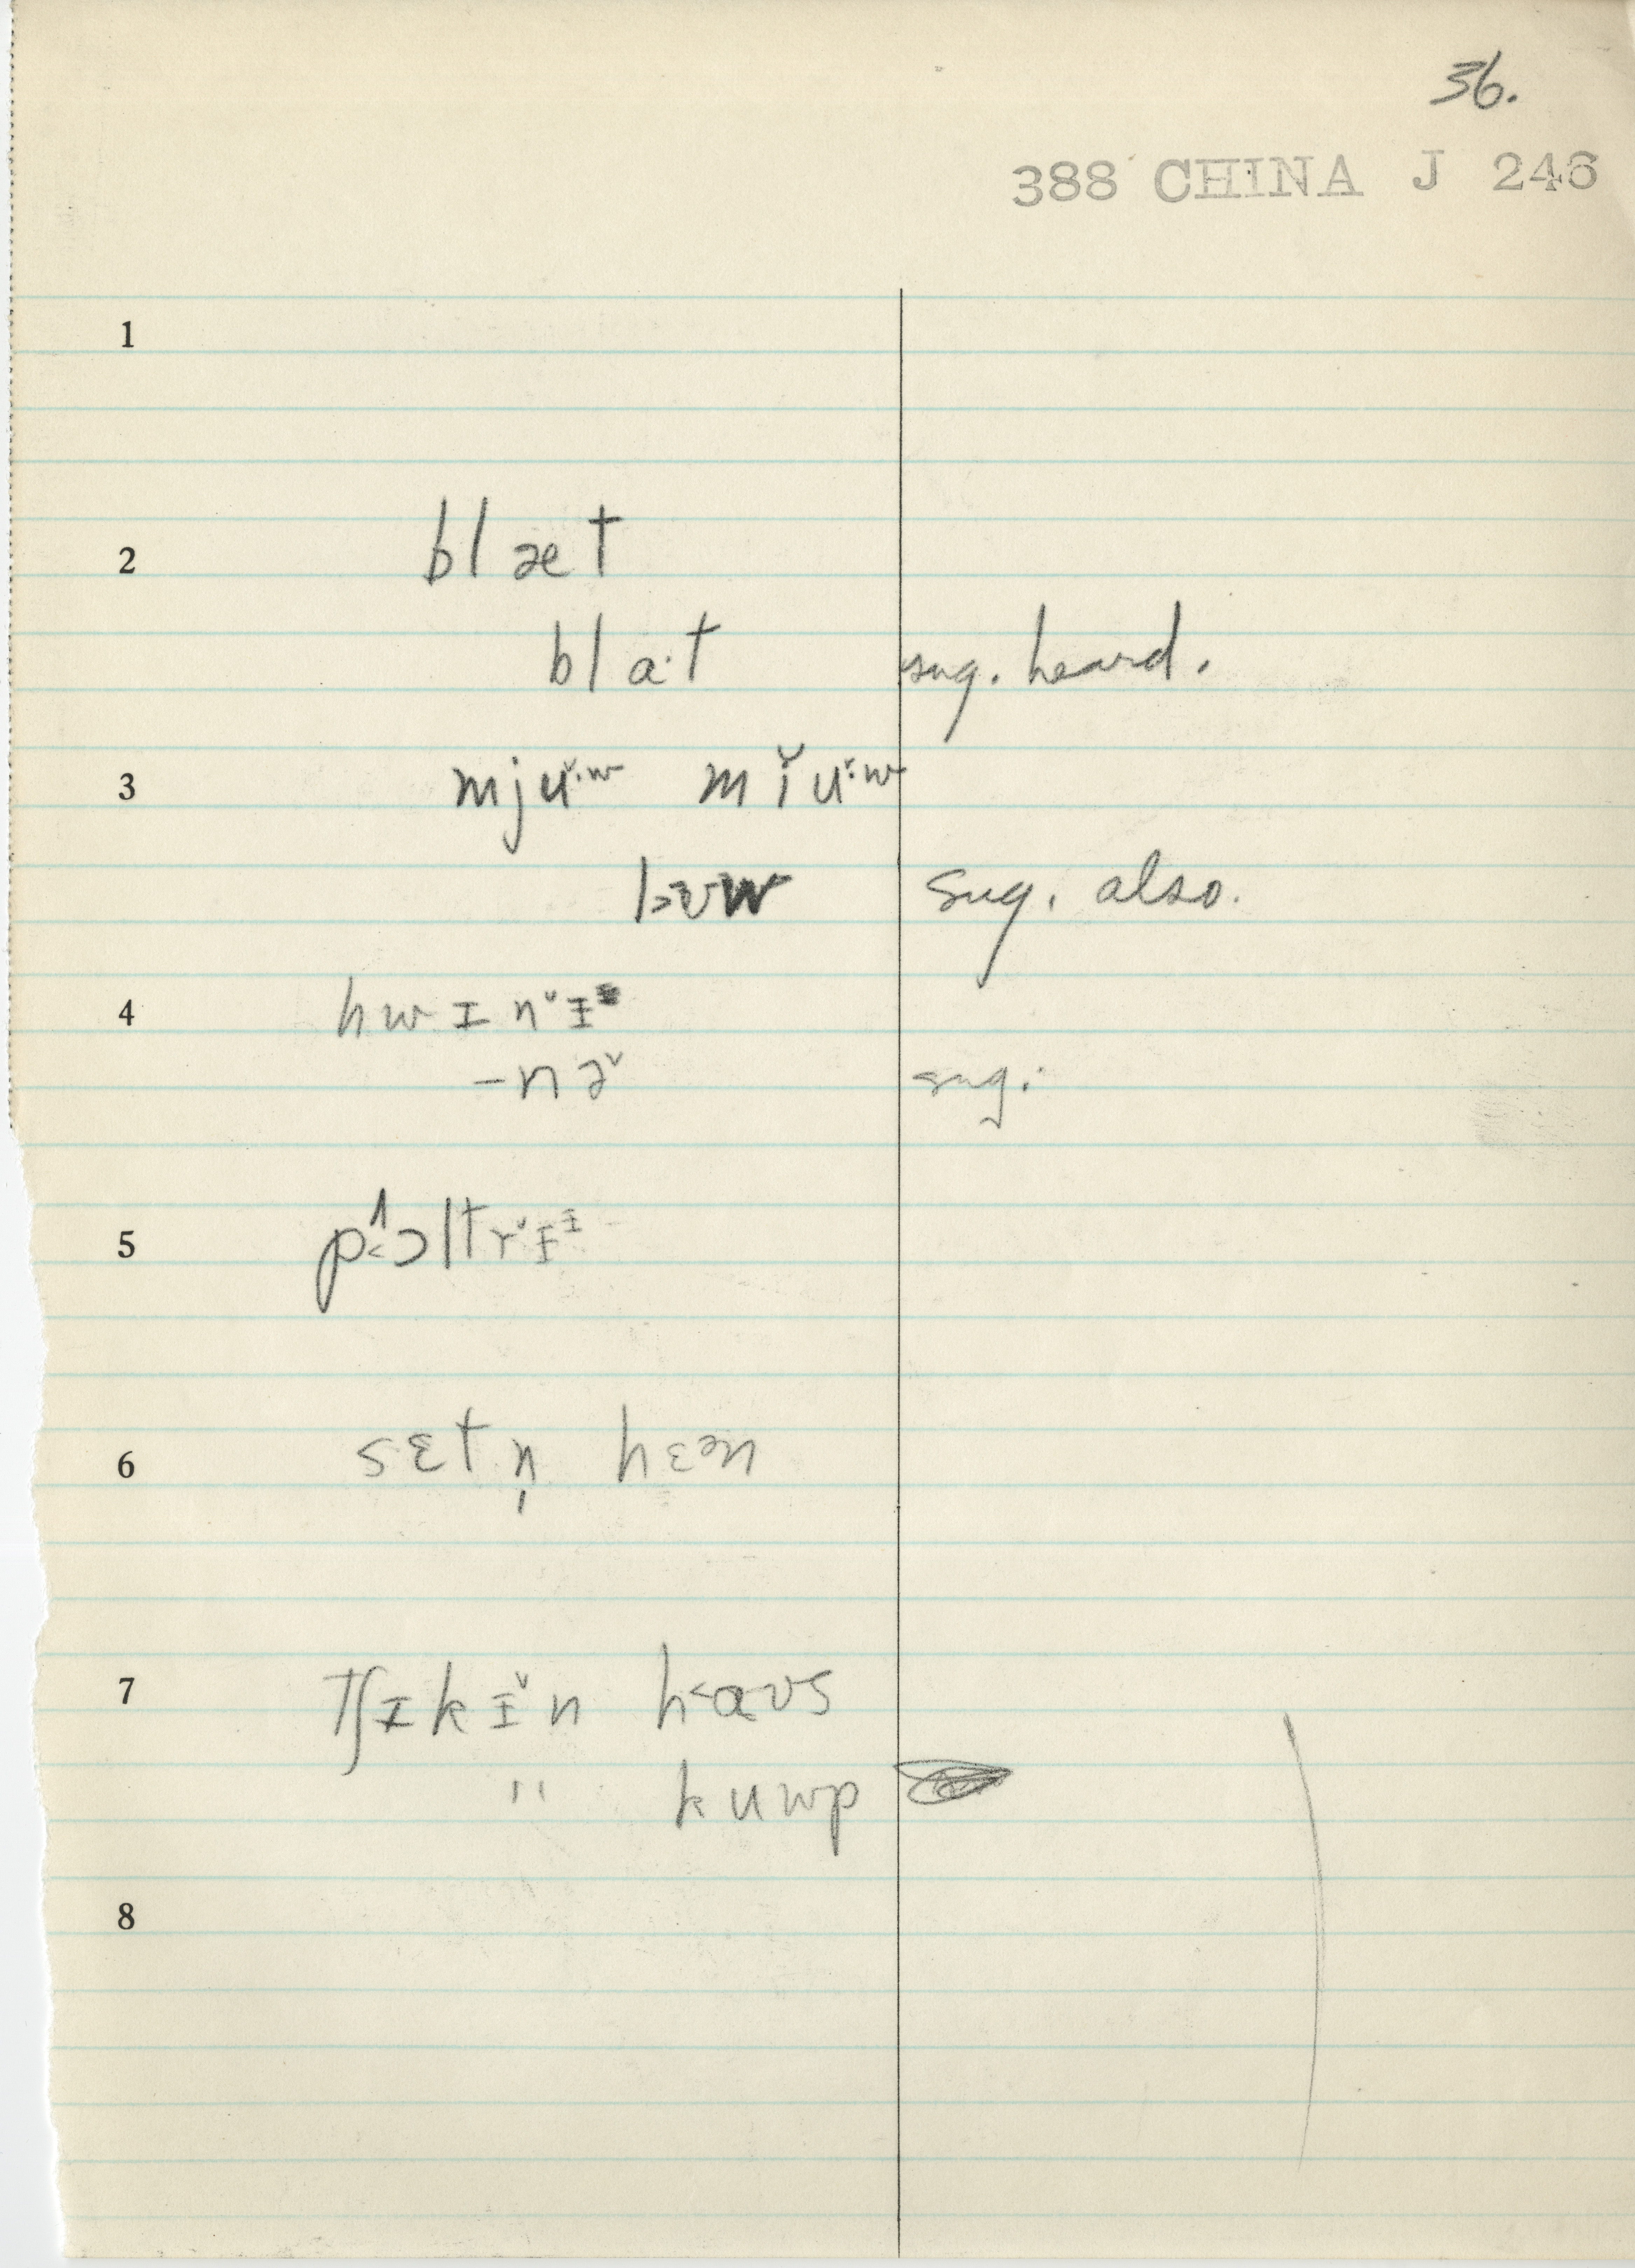 36.
388 CHINA J 246
1
2 blæt
bla·t sug. heard.
3 mjᵾ̌·ʷ mǐᵾ̌·ʷ
sug. also.
4 hwɪnˇɪ
-nə̌ sug.
5 pʌ˂ɔltrˇɪᶦ
6 sɛtn̩ hɛən
7 tʃɪkɪ̌n h˂aʊs
" kuwp
8